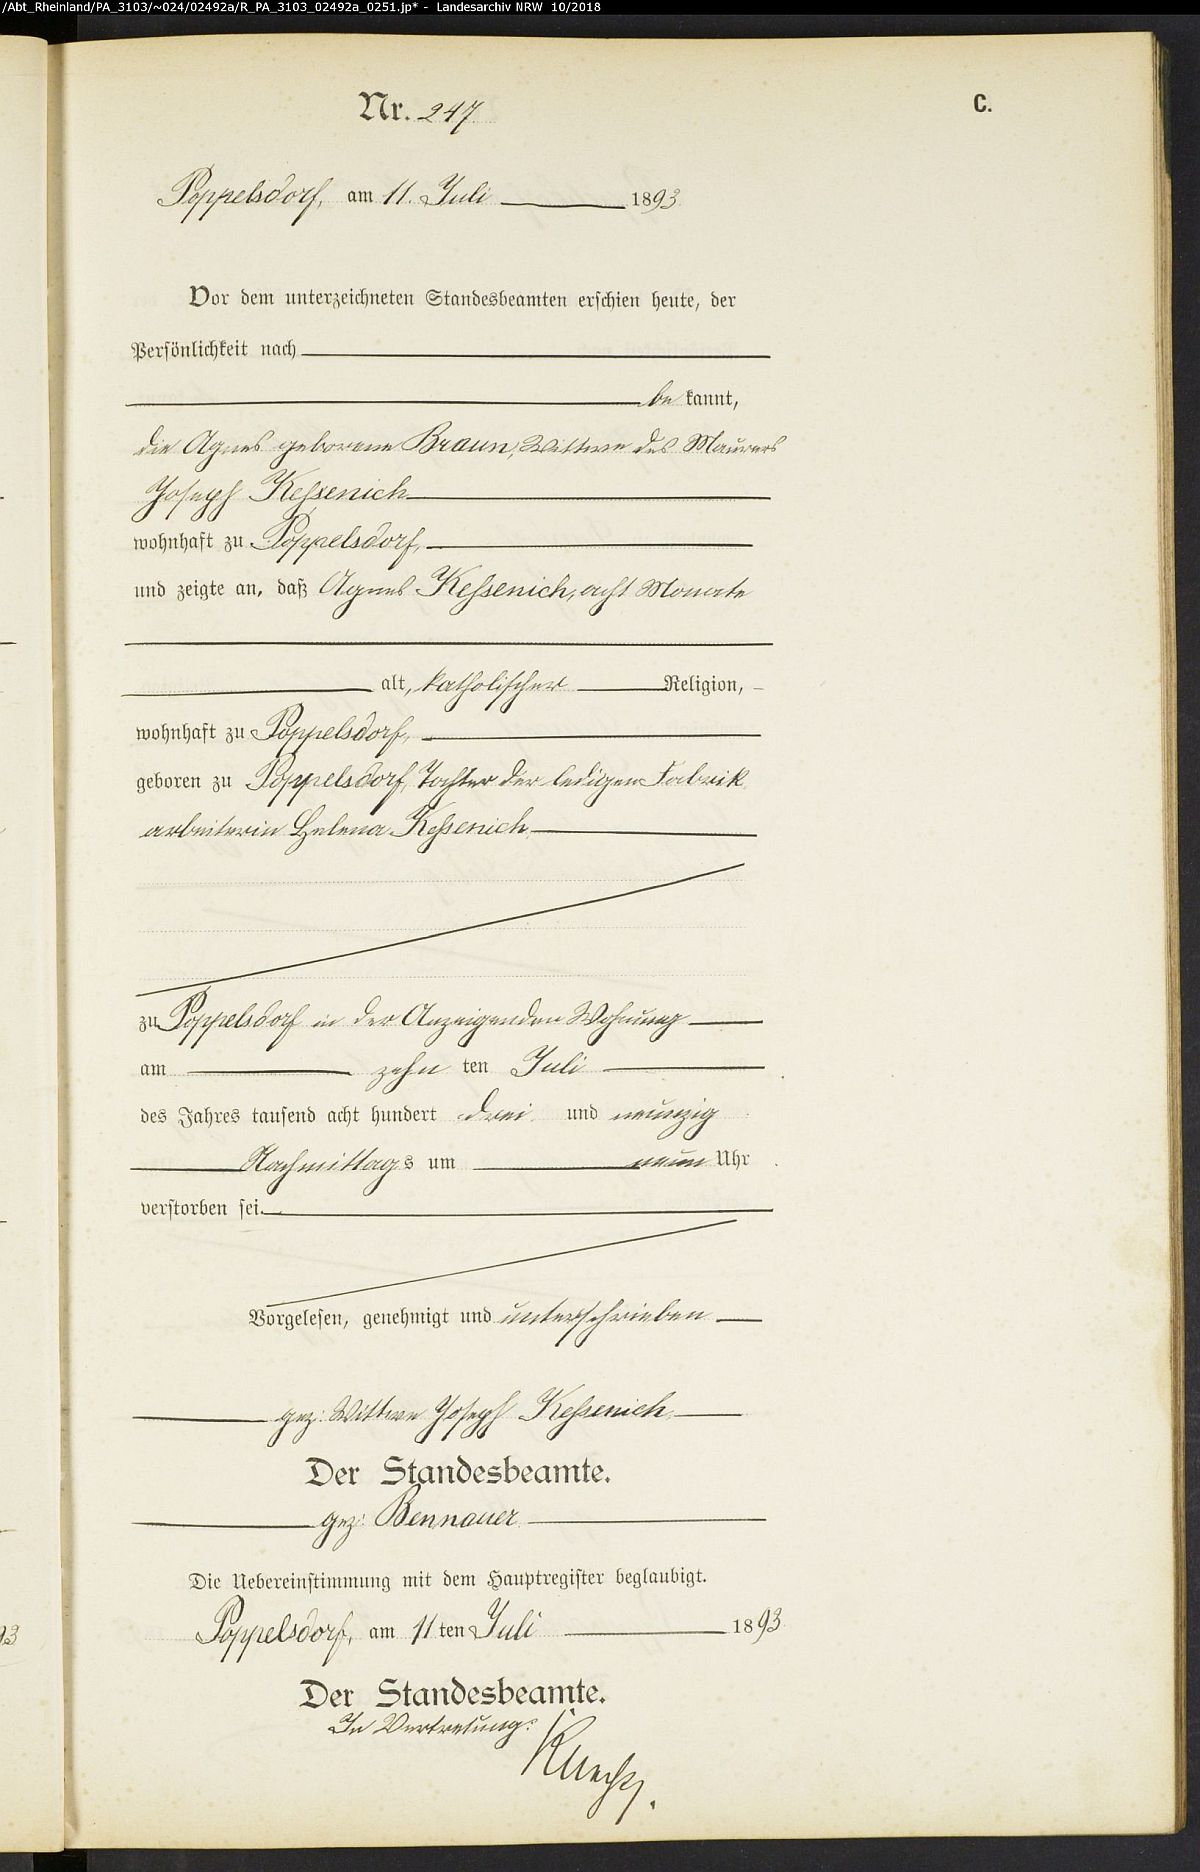 /Abt_Rheinland/PA_3103/~024/02492a/R_PA_3103_02492a_0251.jp* - Landesarchiv NRW 10/2018
C.
Nr. 247
Poppelsdorf, am 11. Juli 1893
Vor dem unterzeichneten Standesbeamten erschien heute, der
Persönlichkeit nach
be kannt,
die Agnes geborene Braun, Wittwe des Maurers
Joseph Kessenich
wohnhaft zu Poppelsdorf,
und zeigte an, daß Agnes Kessenich, acht Monate
alt, katholischer Religion,
wohnhaft zu Poppelsdorf,
geboren zu Poppelsdorf, Tochter der ledigen Fabrik
arbeiterin Helena Kessenich
zu Poppelsdorf in der Anzeigenden Wohnung
am zehn ten Juli
des Jahres tausend acht hundert drei und neunzig
Nachmittags um neun Uhr
verstorben sei.
Vorgelesen, genehmigt und unterschrieben
gez: Wittwe Joseph Kessenich
Der Standesbeamte.
gez: Bennauer
Die Uebereinstimmung mit dem Hauptregister beglaubigt.
Poppelsdorf, am 11 ten Juli 1893
93
Der Standesbeamte.
In Vertretung: